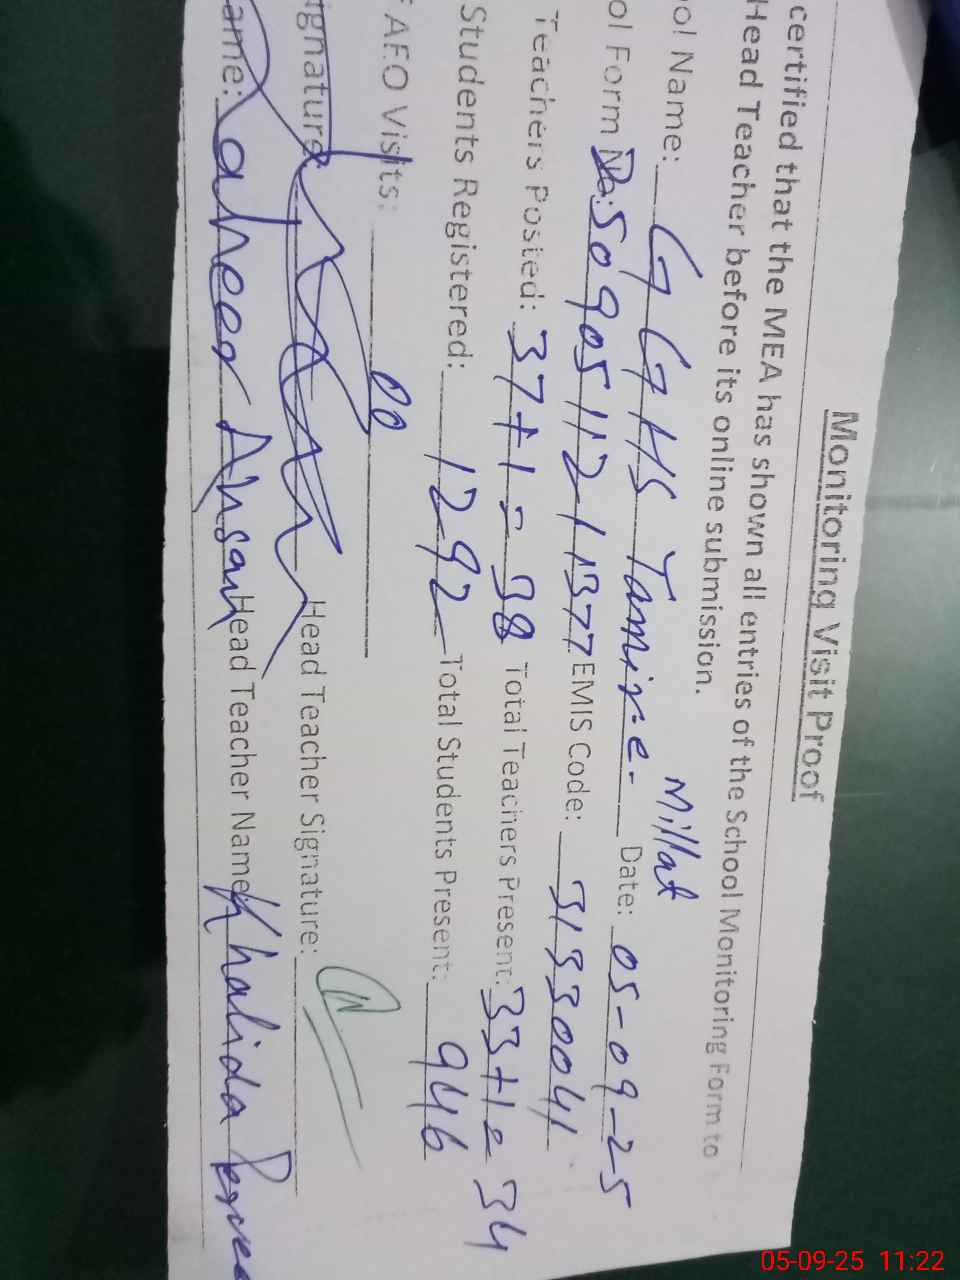 Monitoring Visit Proof
certified that the MEA has shown all entries of the School Monitoring Form to
Head Teacher before its online submission.
ol Name: GGHS Tamir-e- Millat Date: 05-09-25
ol Form No: 50905112111377 EMIS Code: 31330041
Teachers Posted: 37+1= 38 Total Teachers Present: 33+1= 34
Students Registered: 1292 Total Students Present: 946
f AEO Visits: 00
ignature: Head Teacher Signature:
ame: Ahsan Head Teacher Name: Khalida Parvee
05-09-25 11:22